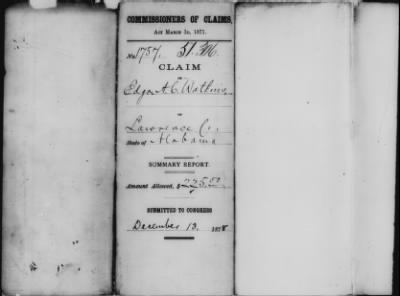 COMMISSIONERS OF CLAIMS,
ACT MARCH 3D, 1871.
No. 1757. 51.306.
CLAIM
OF
Edgar A. C. Watkins,
OF
Lawrence Co.,
State of Alabama
SUMMARY REPORT.
Amount Allowed, $225.00
SUBMITTED TO CONGRESS
December 13, 1878